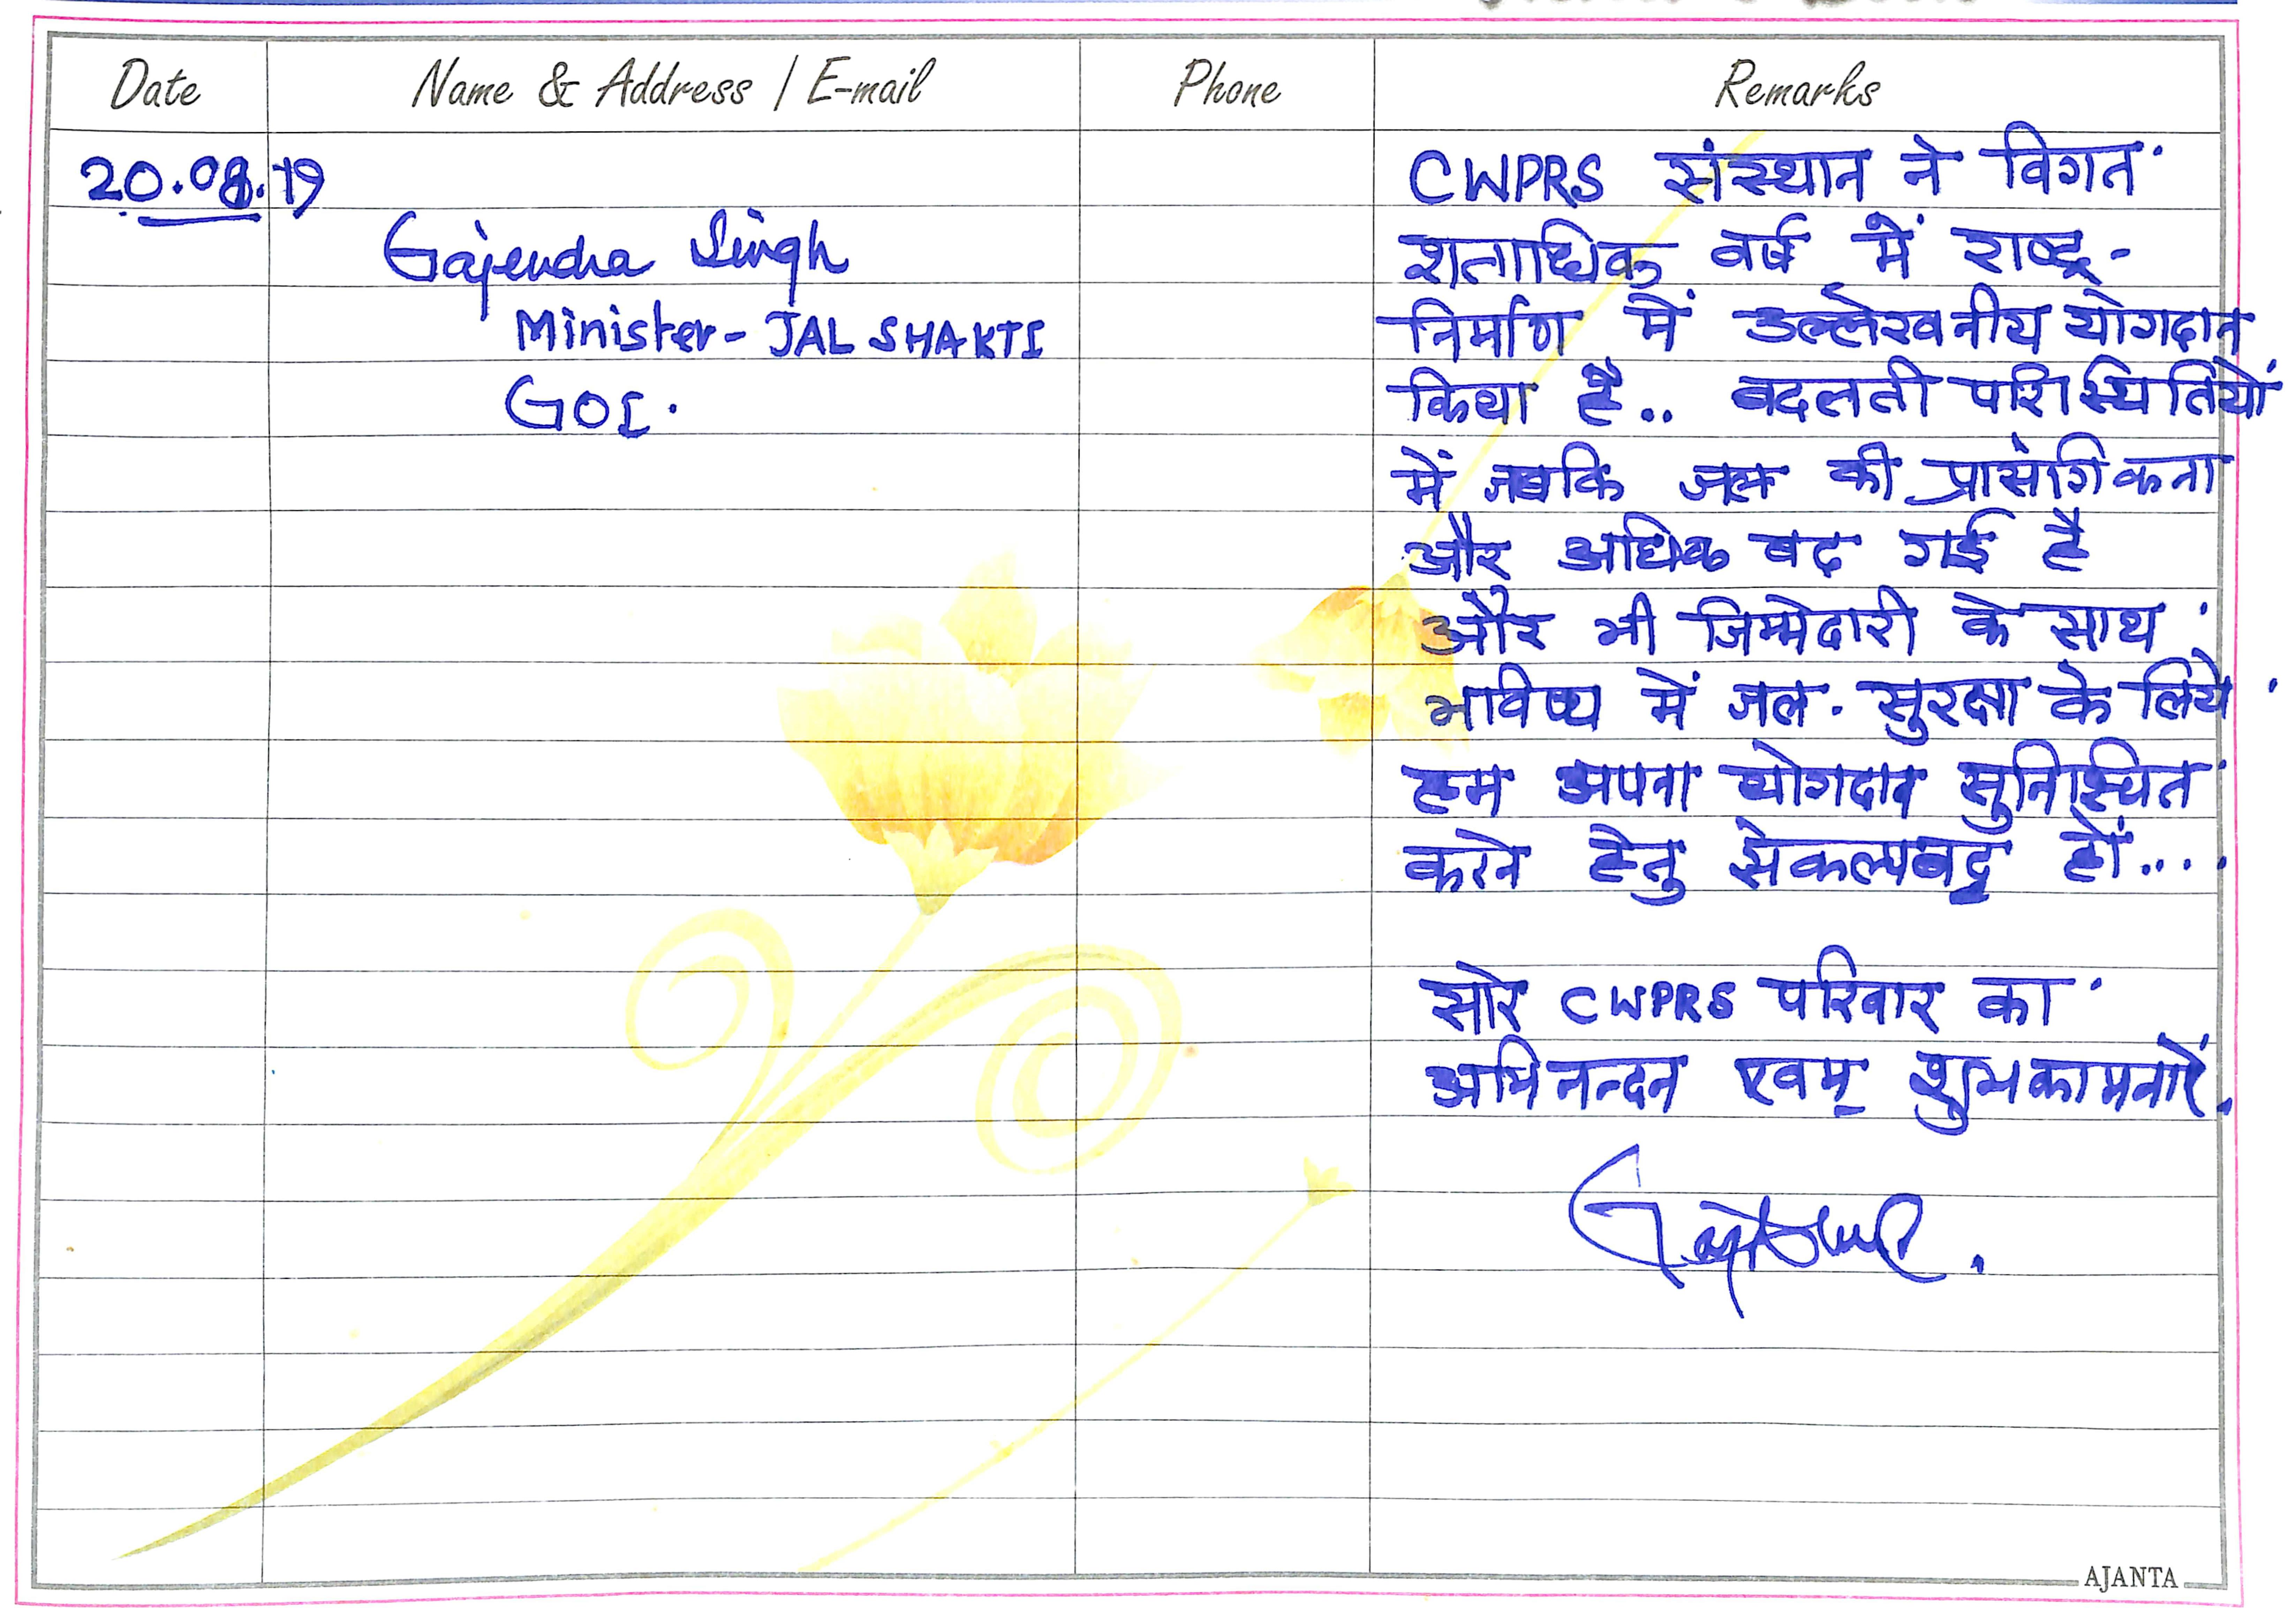 Date Name & Address / E-mail Phone Remarks
20.08.19
Gajendra Singh
Minister - JAL SHAKTI
GOI.
CWPRS संस्थान ने विगत
शताधिक वर्ष में राष्ट्र-
निर्माण में उल्लेखनीय योगदान
किया है.. बदलती परिस्थितियों
में जबकि जल की प्रासंगिकता
और अधिक बढ़ गई है
और भी जिम्मेदारी के साथ
भविष्य में जल. सुरक्षा के लिये
हम अपना योगदान सुनिश्चित
करने हेतु संकल्पबद्ध हों....
सारे CWPRS परिवार का
अभिनन्दन एवम् शुभकामनाऐं.
AJANTA